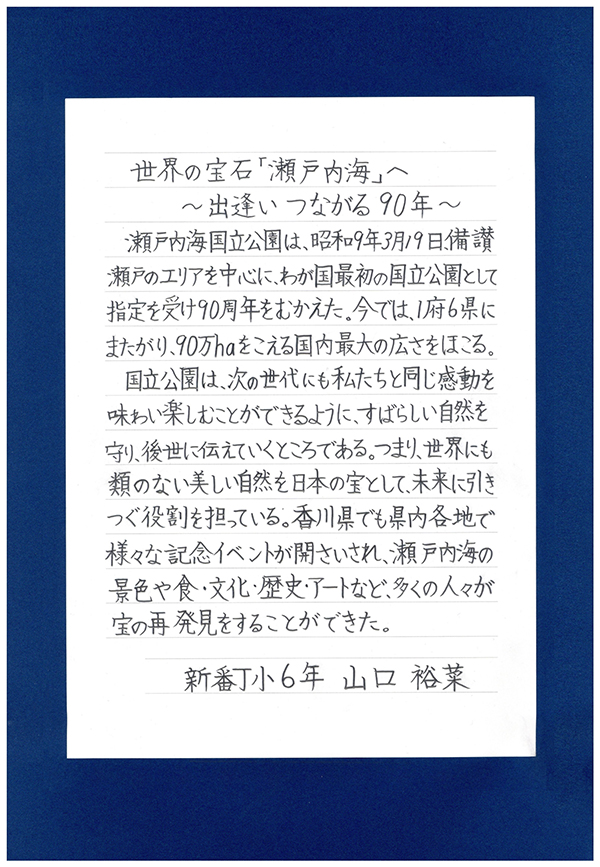 世界の宝石「瀬戸内海」へ
～出逢い つながる 90年～
瀬戸内海国立公園は、昭和9年3月19日、備讃
瀬戸のエリアを中心に、わが国最初の国立公園として
指定を受け90周年をむかえた。今では、1府6県に
またがり、90万haをこえる国内最大の広さをほこる。
国立公園は、次の世代にも私たちと同じ感動を
味わい楽しむことができるように、すばらしい自然を
守り、後世に伝えていくところである。つまり、世界にも
類のない美しい自然を日本の宝として、未来に引き
つぐ役割を担っている。香川県でも県内各地で
様々な記念イベントが開さいされ、瀬戸内海の
景色や食・文化・歴史・アートなど、多くの人々が
宝の再発見をすることができた。
新番丁小6年 山口 裕菜